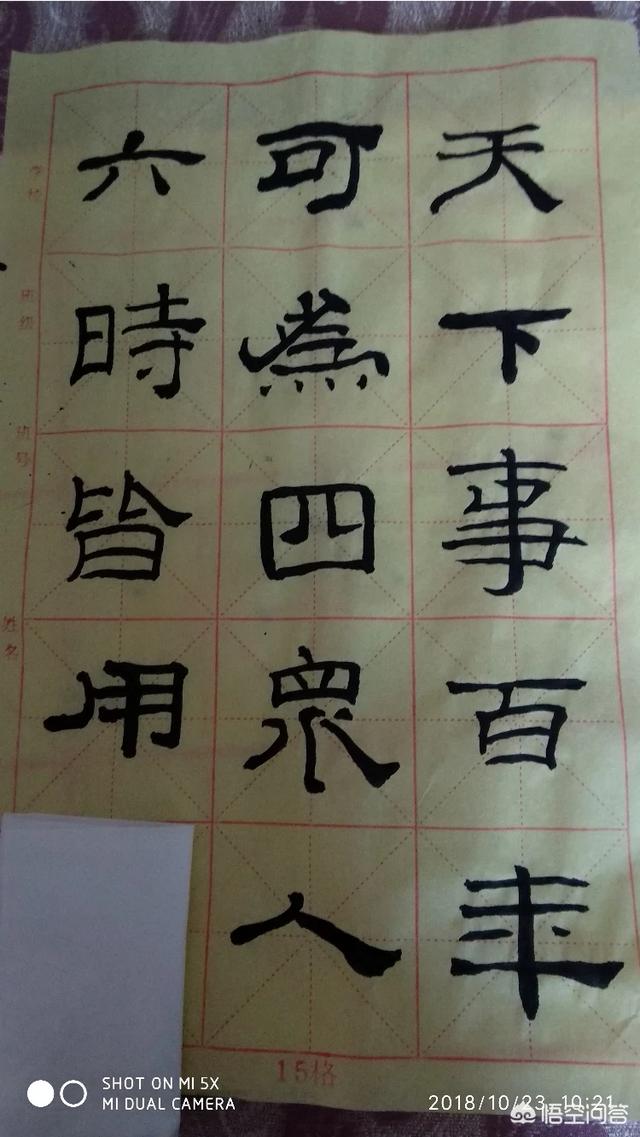 天下事百年
可為四眾人
六時皆用
学校
班级
姓名
15格
SHOT ON MI 5X
MI DUAL CAMERA
2018/10/23 10:21
悟空问答